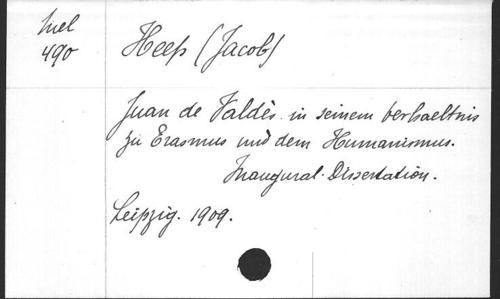 Mel
490
Heep (Jacob)
Juan de Valdès in seinem verhaeltnis
zu Erasmus und dem Humanismus.
Inaugural-Dissertation.
Leipzig. 1909.